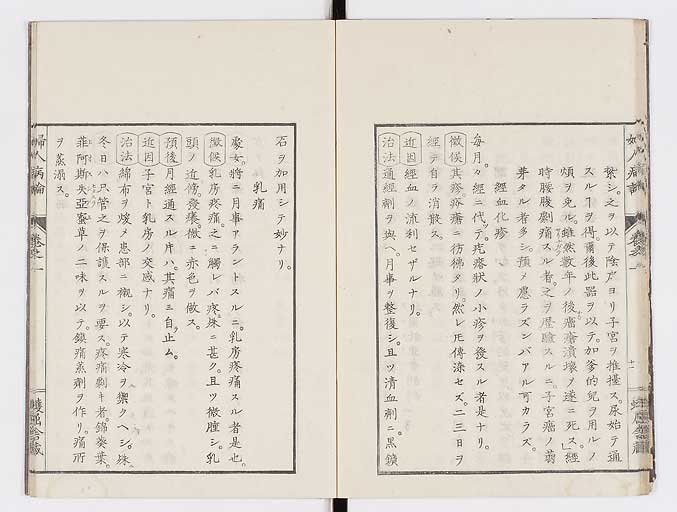 繋シ。之ヲ以テ陰戸ヨリ子宮ヲ推擡ス。尿始テ通
スルヿヲ得。爾後此器ヲ以テ。加爹的兒ヲ用ルノ
煩ヲ免ル。雖然數年ノ後。癌瘡潰壞ノ遂ニ死ス。經
時腰腹劇痛スル者。之ヲ歴驗スルニ。子宮癌ノ萠
芽タル者多シ。預メ慮ラズンバアル可カラズ。
經血化疹
毎月。經ニ代テ。疙瘩状ノ小疹ヲ發スル者是ナリ。
徴候 其疹。痧疹ニ彷彿タリ。然レ𪜈傳染セズ。二三日ヲ
經テ自ラ消散ス。
近因 經血ノ流利セザルナリ。
治法 通經劑ヲ與ヘ。月事ヲ整復シ。且ツ清血劑ニ。黒鑛
石ヲ加用シテ妙ナリ。
乳痛
處女。將ニ月事アラントスルニ。乳房疼痛スル者是也。
徴候 乳房疼痛。之ニ觸レバ疼殊ニ甚ク。且ツ微腫シ。乳
頭ノ近傍。發癢。微ニ赤色ヲ做ス。
預後 月經通スル片ハ。其痛ミ自ラ止ム。
近因 子宮ト乳房ノ交感ナリ。
治法 綿布ヲ煖メ患部ニ襯シ。以テ寒冷ヲ禦クヘシ。殊
冬日ハ只管之ヲ保護スルヲ要ス。疼痛劇キ者。錦葵葉。
菲阿斯失亞蜜草ノ二味ヲ以テ。鎮痛蒸劑ヲ作リ。痛所
ヲ蒸溻ス。
婦人病論 卷之一